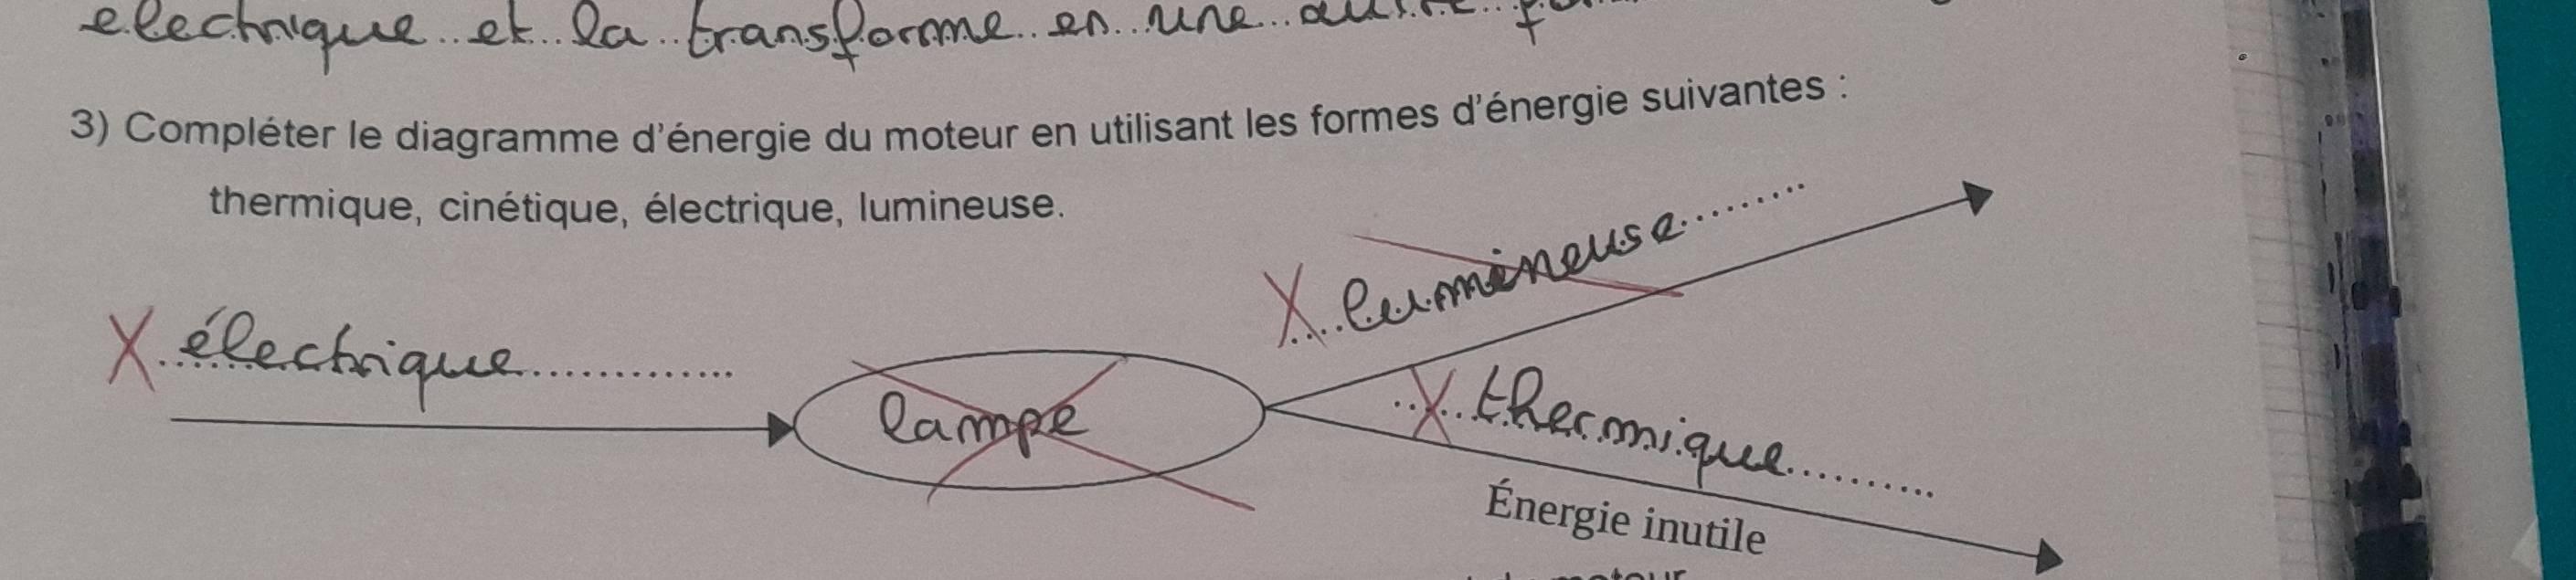 electrique et la transforme en une
3) Compléter le diagramme d'énergie du moteur en utilisant les formes d'énergie suivantes :
thermique, cinétique, électrique, lumineuse.
X lumineuse
X électrique
lampe
X thermique
Énergie inutile
moteur